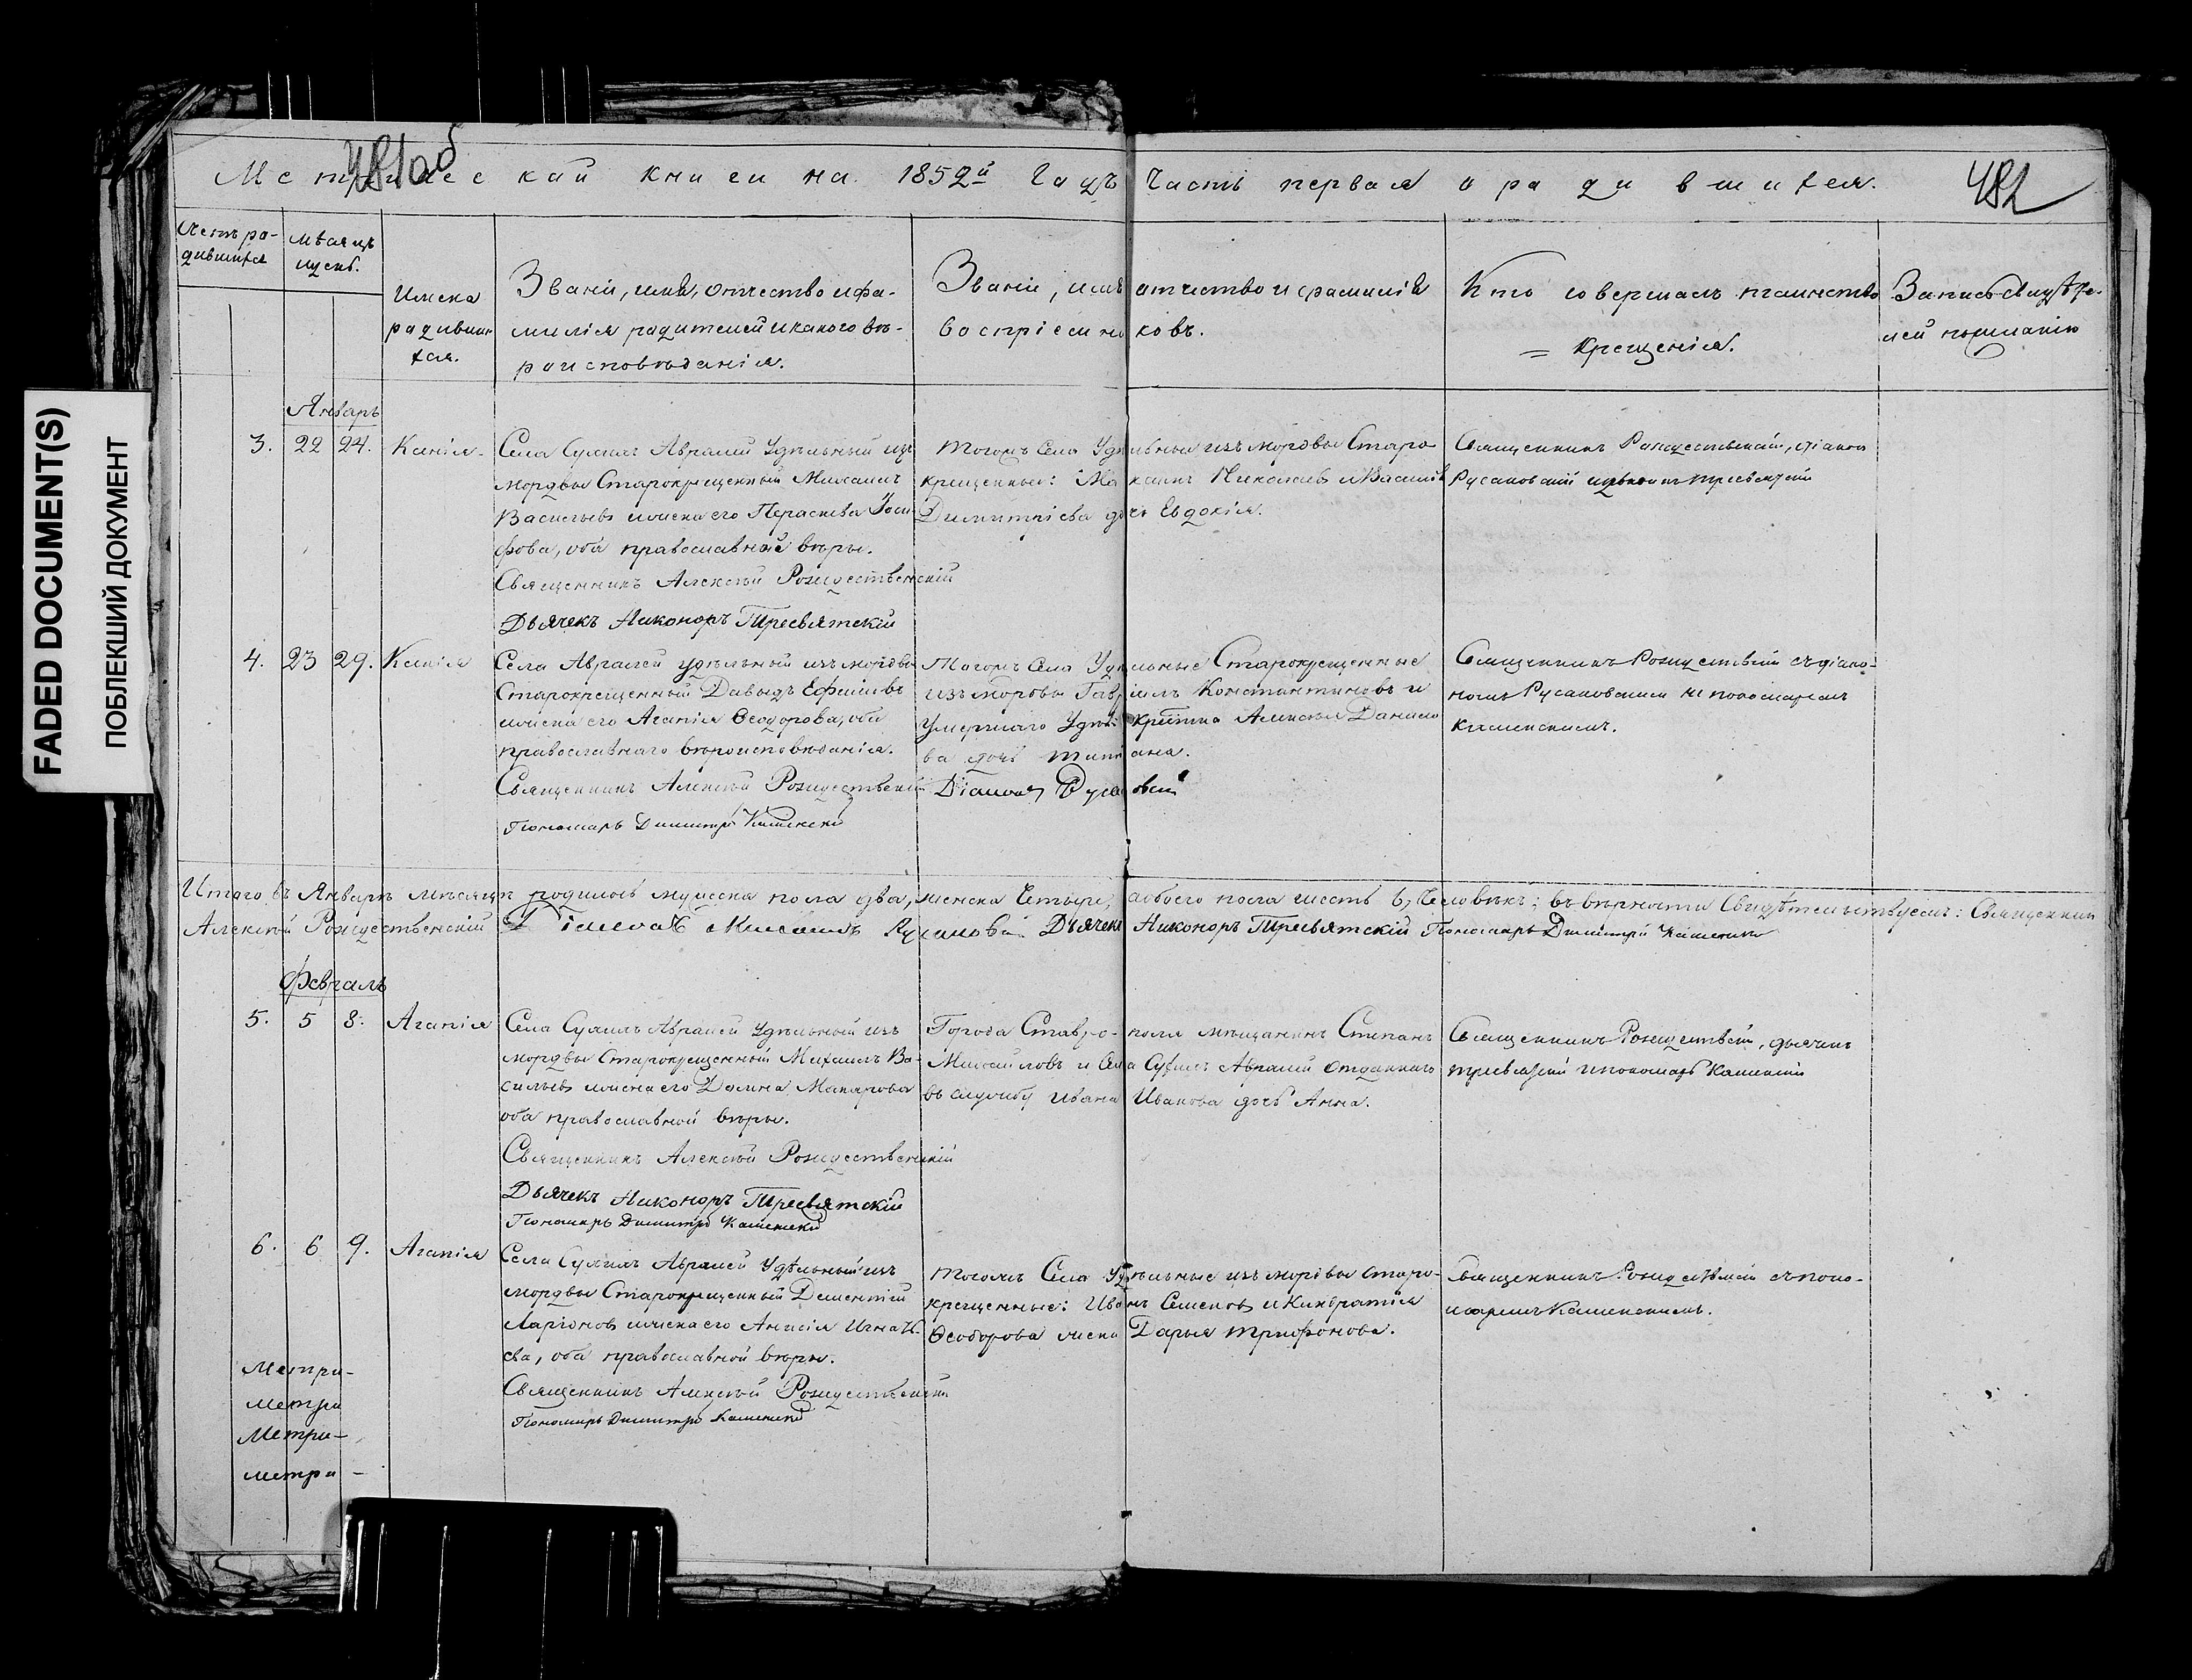 FADED DOCUMENT(S)
ПОБЛЕКШИЙ ДОКУМЕНТ
481об
482
Метрической книги на 1852й Годъ Часть первая о родившихся.
Счетъ родившихся
Мѣсяцъ и день.
Имена родившихся.
Званіе, имя, отчество и фа-
милія родителей и какого вѣ-
роисповѣданія.
Званіе, имя отчество и фамилія
воспріемниковъ.
Кто совершалъ таинство
= Крещенія.
Январь
3. 22 24. Ксенія.
Села Авралей Удѣльный изъ
мордвы Старокрещенный Михаилъ
Васильевъ и жена его Параскева Іоси-
фова, оба православной вѣры.
Священникъ Алексѣй Рождественскій
Дьячекъ Никоноръ Тресвятскій
Тогожъ Села Удѣльные изъ мордвы Старо
крещенные: Николаевъ и
Димитріева дочь Евдокія.
Священникъ Рождественскій, діаконъ
Русановскій Тресвятскій
4. 23 29. Ксенія
Села Авралей удѣльный изъ мордвы
Старокрещенный Давыдъ Ефимовъ
и жена его Агапія Ѳеодорова, оба
православнаго вѣроисповѣданія.
Священникъ Алексѣй Рождественскій
Пономарь Димитрій Каменскій
Тогожъ Села Удѣльные Старокрещенные
изъ мордвы Гавріилъ Константиновъ и
умершаго Алексѣя Данило
ва дочь Татіана.
Діаконъ
Священникъ Рождественскій съ діако-
номъ Русановскимъ и пономаремъ
Каменскимъ.
Итого въ Январѣ мѣсяцѣ родилось мужеска пола два, женска Четыре, а обоего пола шесть 6, Человѣкъ; въ вѣрности Свидѣтельствуемъ: Священникъ
Алексѣй Рождественскій Діаконъ Михаилъ Дьячекъ Никоноръ Тресвятскій Пономарь Димитрій Каменскій
Февраль
5. 5 8. Агапія
Села Авралей Удѣльный изъ
мордвы Старокрещенный Михаилъ Ва-
сильевъ и жена его Домна Макарова
оба православной вѣры.
Священникъ Алексѣй Рождественскій
Дьячекъ Никоноръ Тресвятскій
Пономарь Димитрій Каменскій
Города Ставрополя мѣщанинъ Степанъ
Михайловъ и Села Авралей отданнаго
въ службу Ивана Иванова дочь Анна.
Священникъ Рождественскій, дьячекъ
Тресвятскій и пономарь Каменскій
6. 6 9. Агапія
Села Авралей Удѣльный изъ
мордвы Старокрещенный Дементій
Ларіоновъ и жена его Анисія Игнать-
ева, оба православной вѣры.
Священникъ Алексѣй Рождественскій
Пономарь Димитрій Каменскій
Тогожъ Села Удѣльные изъ мордвы старо-
крещенные: Иванъ Семеновъ и Киндратія
Ѳеодорова жена Дарья Трифонова.
Священникъ Рождественскій съ поно-
маремъ Каменскимъ.
Метри-
метри
Метри-
метри-